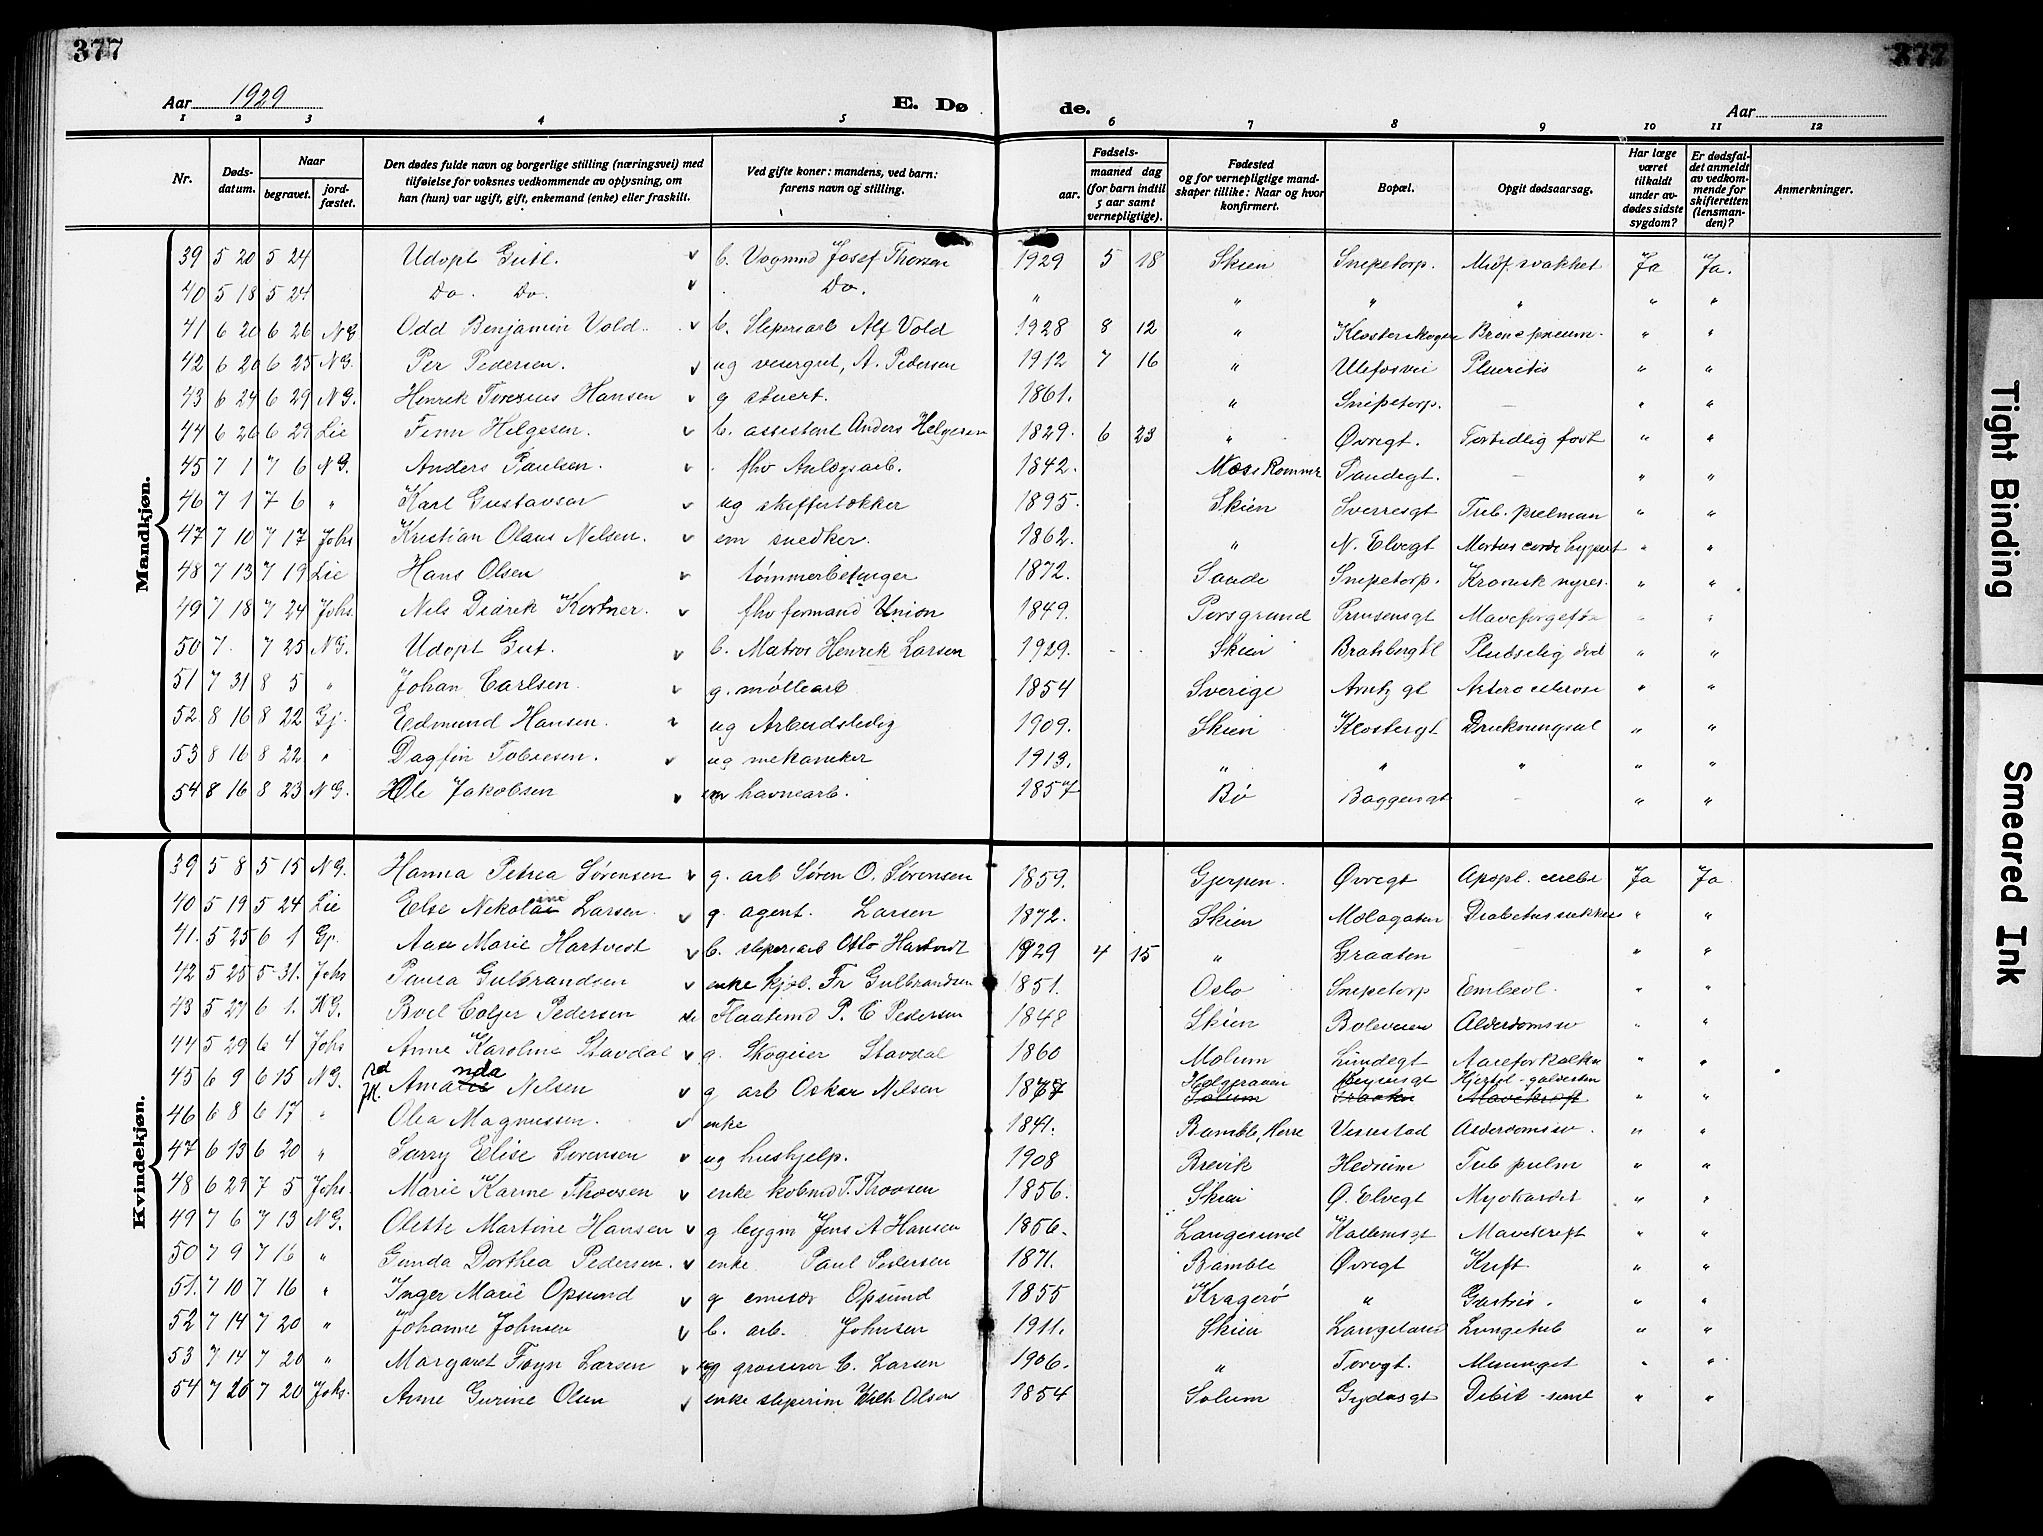 377 377
Aar 1929 E. Dø de. Aar
1 2 3 4 5 6 7 8 9 10 11 12
Nr. Døds-datum. Naar begravet. jord-fæstet. Den dødes fulde navn og borgerlige stilling (næringsvei) med tilføielse for voksnes vedkommende av oplysning, om han (hun) var ugift, gift, enkemand (enke) eller fraskilt. Ved gifte koner: mandens, ved barn: farens navn og stilling. Fødsels- aar. maaned dag (for barn indtil 5 aar samt vernepligtige). Fødested og for vernepligtige mand-skaper tillike: Naar og hvor konfirmert. Bopæl. Opgit dødsaarsag. Har læge været tilkaldt under av-dødes sidste sygdom? Er dødsfal-det anmeldt av vedkom-mende for skifteretten (lensman-den)? Anmerkninger.
Mandkjøn.
39 5 20 5 24 Udøpt Gut. b. Vognmd Josef Thorsen 1929 5 18 Skien Snipetorp. Medf. svakhet Ja Ja.
40 5 18 5 24 Do. Do. Do. " " " " " "
41 6 20 6 26 N G Odd Benjamin Vold b. Sliperiarb Alf Vold 1928 8 12 " Klosterskogen Broncpneum. " "
42 6 20 6 25 N G. Per Pedersen. ug visergut, A. Pedersen 1912 7 16 " Ulefosvei Pleuritis " "
43 6 24 6 29 N G. Henrik Hansen g stuert. 1861. " Snipetorp. — " "
44 6 26 6 29 Lie Finn Helgesen. b. assistent Anders Helgesen 1829. 6 23 " Øvregt. Fortidlig født " "
45 7 1 7 6 N G. Anders Paulsen. fhv Anlægsarb. 1842. Moss Sandegt. — " "
46 7 1 7 6 " Karl Gustavsen ug skiffertækker 1895. Skien Sverresgt Tub. pulman " "
47 7 10 7 17 Johs Kristian Olaus Nilsen. em snedker. 1862. " N. Elvegt Morbus cordis " "
48 7 13 7 19 Lie Hans Olsen tømmerbetinger 1872. Sande Snipetorp. Kronisk nyres. " "
49 7 18 7 24 Johs. Nils Didrik Kortner. fhv formand Union 1849. Porsgrund Prinsensgt " "
50 7. 7 25 N G. Udøpt Gut. b. Matros Henrik Larsen 1929. - - Skien Pludselig død " "
51 7 31 8 5 " Johan Carlsen. g. møllearb 1854 Sverige " "
52. 8 16 8 22 Gj. Edmund Hansen. ug Arbeidsledig 1909. Skien Klostergt " "
53 8 16 8 22 " Dagfin Tobiesen. ug mekaniker 1913. " " " " "
54 8 16 8 23 N G. Ole Jakobsen em havnearb. 1857 Bø Baggersgt — " "
Kvindekjøn.
39 5 8 5 15 N G. Hanna Petrea Sørensen g. arb Søren O. Sørensen 1859. Gjerpen. Øvregt Apopl. cerebr Ja Ja
40 5 19 5 24 Lie Else Nikolaine Larsen. g. agent. Larsen 1872. Skien " "
41. 5 25 6 1 Gj. Aase Marie Hartvedt b. sliperiarb Otto Hartvedt 1929 4 15 " Graaten — " "
42 5 25 5 31. Johs Paula Gulbrandsen enke kjøb. Fr Gulbrandsen 1851. Oslo Snipetorp Emboli. " "
43 5 27 6 1. N G. Pedersen P. C Pedersen 1848 Skien Boleveien Alderdomssv " "
44 5 29 6 4 Johs Anne Karoline Stavdal g. Stavdal 1860 Molum Lundegt Aareforkalkn " "
45 6 9 6 15 N G. Amanda Nilsen g arb Oskar Nilsen Solum Graaten Mavekræft " "
46 6 8 6 17 " Olea Magnussen. enke 1841. Bamble, Herre Alderdomssv. " "
47 6 13 6 20 " Sørensen ug hushjelp. 1908 Brevik Tub pulm " "
48 6 29 7 5 Johs. Marie Karine Thovsen enke kobmd T. Thovsen 1856. Skien Ø. Elvegt Myokardit " "
49 7 6 7 13 N G. Olette Martine Hansen g bygm Jens A Hansen 1856. Langesund Mavekreft " "
50 7 9 7 16 " Gunda Dorthea Pedersen. enke Paul Pedersen 1871. Bamble Øvregt Kreft " "
51. 7 10 7 16 " Inger Marie Opsund g Opsund 1855 Kragerø " " "
52 7 14 7 20 " Johanne Johnsen b. arb. Johnsen 1911. Skien Lungetub " "
53 7 14 7 20 " Margaret Foyn Larsen ug grosserer C. Larsen 1906. " Torvgt. " "
54 7 26 7 20 Johs. Anne Gurine Olsen enke Olsen 1854 Solum Gydasgt " "
Tight Binding
Smeared Ink